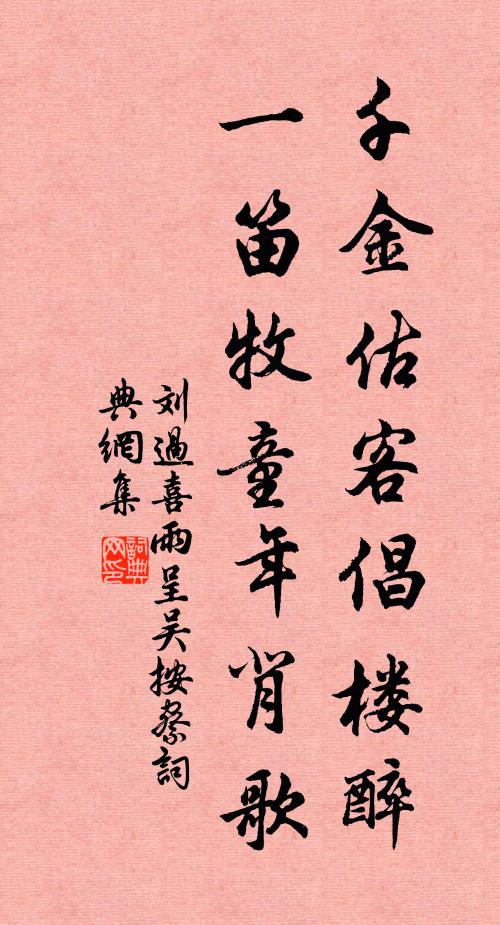 千金估客倡楼醉
一笛牧童年背歌
刘過喜雨呈吴按察詞
典網集
詞典
网印